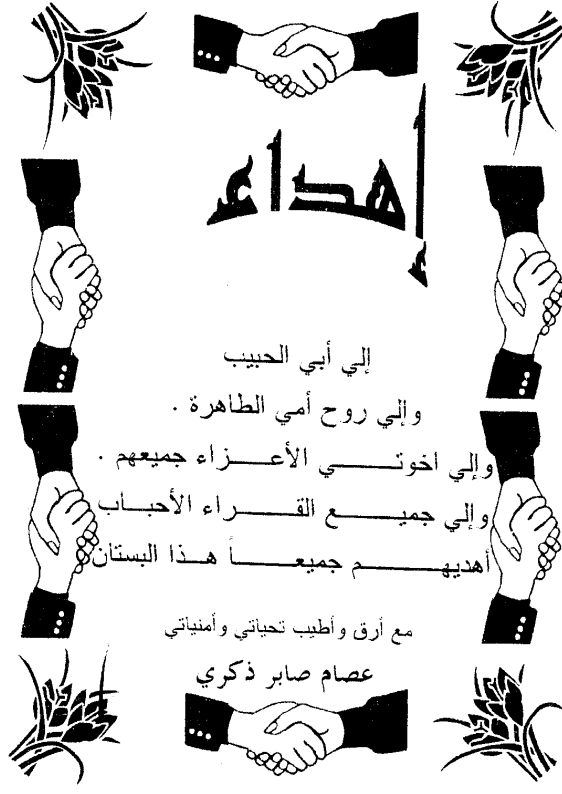 إهداء
إلي أبي الحبيب
وإلي روح أمي الطاهرة .
وإلي اخوتي الأعزاء جميعهم .
وإلي جميع القراء الأحباب
أهديهم جميعاً هذا البستان
مع أرق وأطيب تحياتي وأمنياتي
عصام صابر ذكري